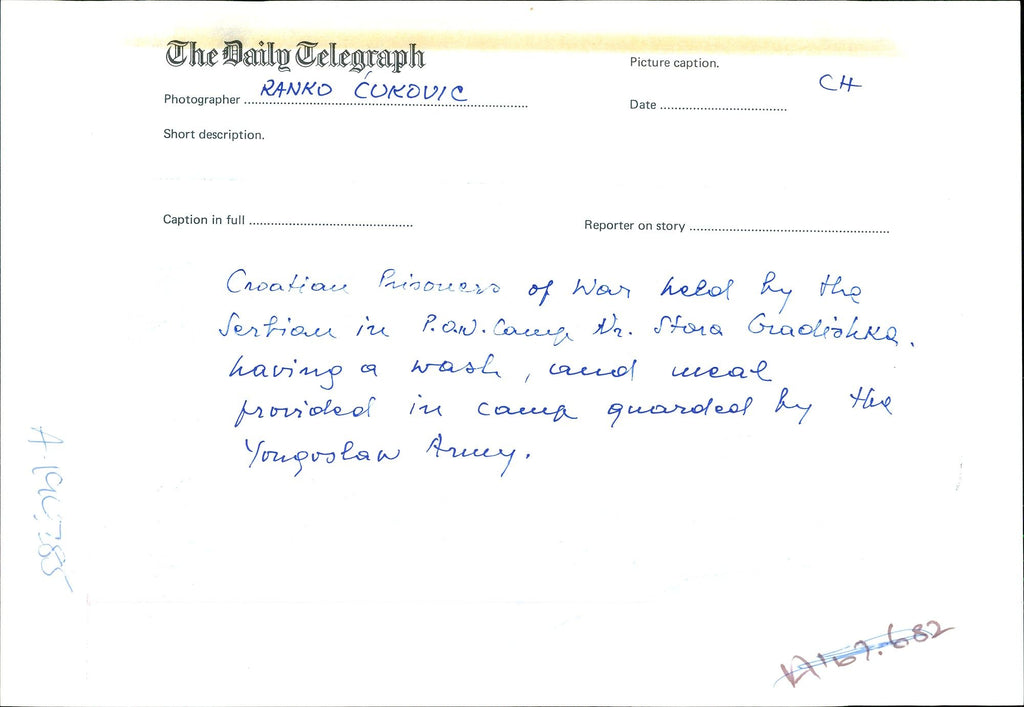 The Daily Telegraph
Picture caption.
CH
Photographer RANKO ĆUKOVIC
Date
Short description.
Caption in full
Reporter on story
Croatian Prisoners of War held by the
Serbian in P.O.W. Camp Nr. Stara Gradishka.
having a wash, and meal
provided in camp guarded by the
Yougoslav Army.
A167.682